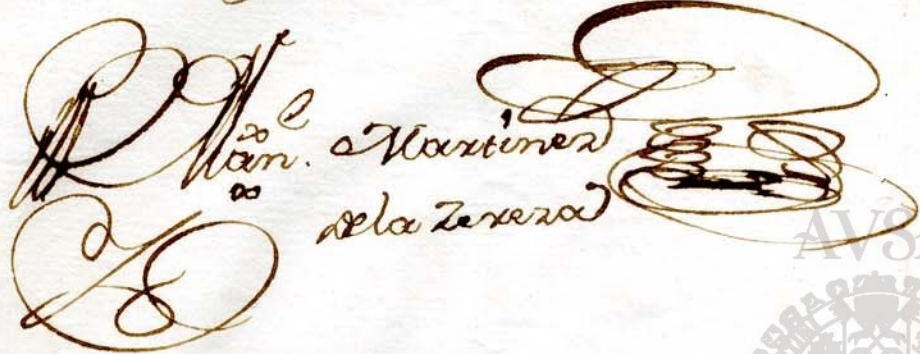 Man.^l Martinez
de la Zereza
AVSA